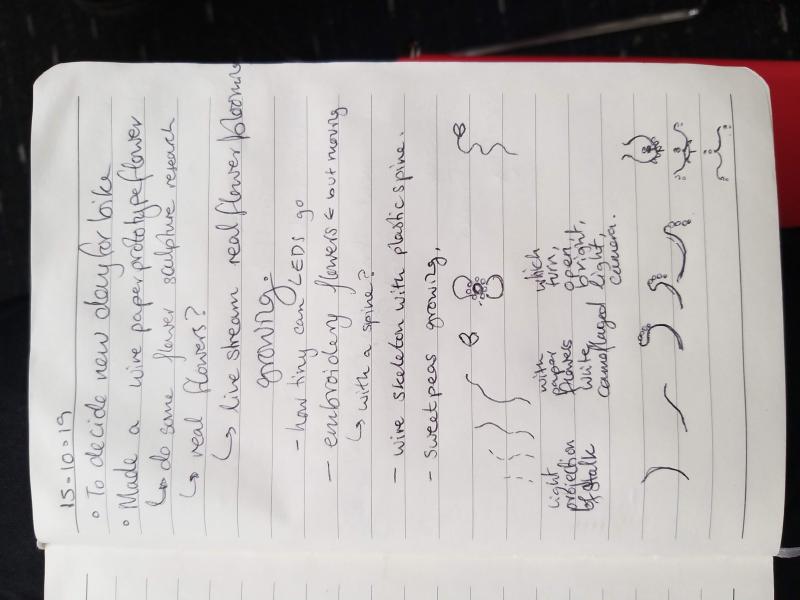 15-10-19
• To decide new day for bike
• Made a wire paper prototype flower
↳ do some flower sculpture research
↳ real flowers?
↳ live stream real flower blooming
growing.
- how tiny can LEDs go
- embroidery flowers ← but moving
↳ with a spine?
- wire skeleton with plastic spine.
- Sweetpeas growing.
light projection of stalk
with paper flowers white camoflaged
which turn, open, bright, light, camera.